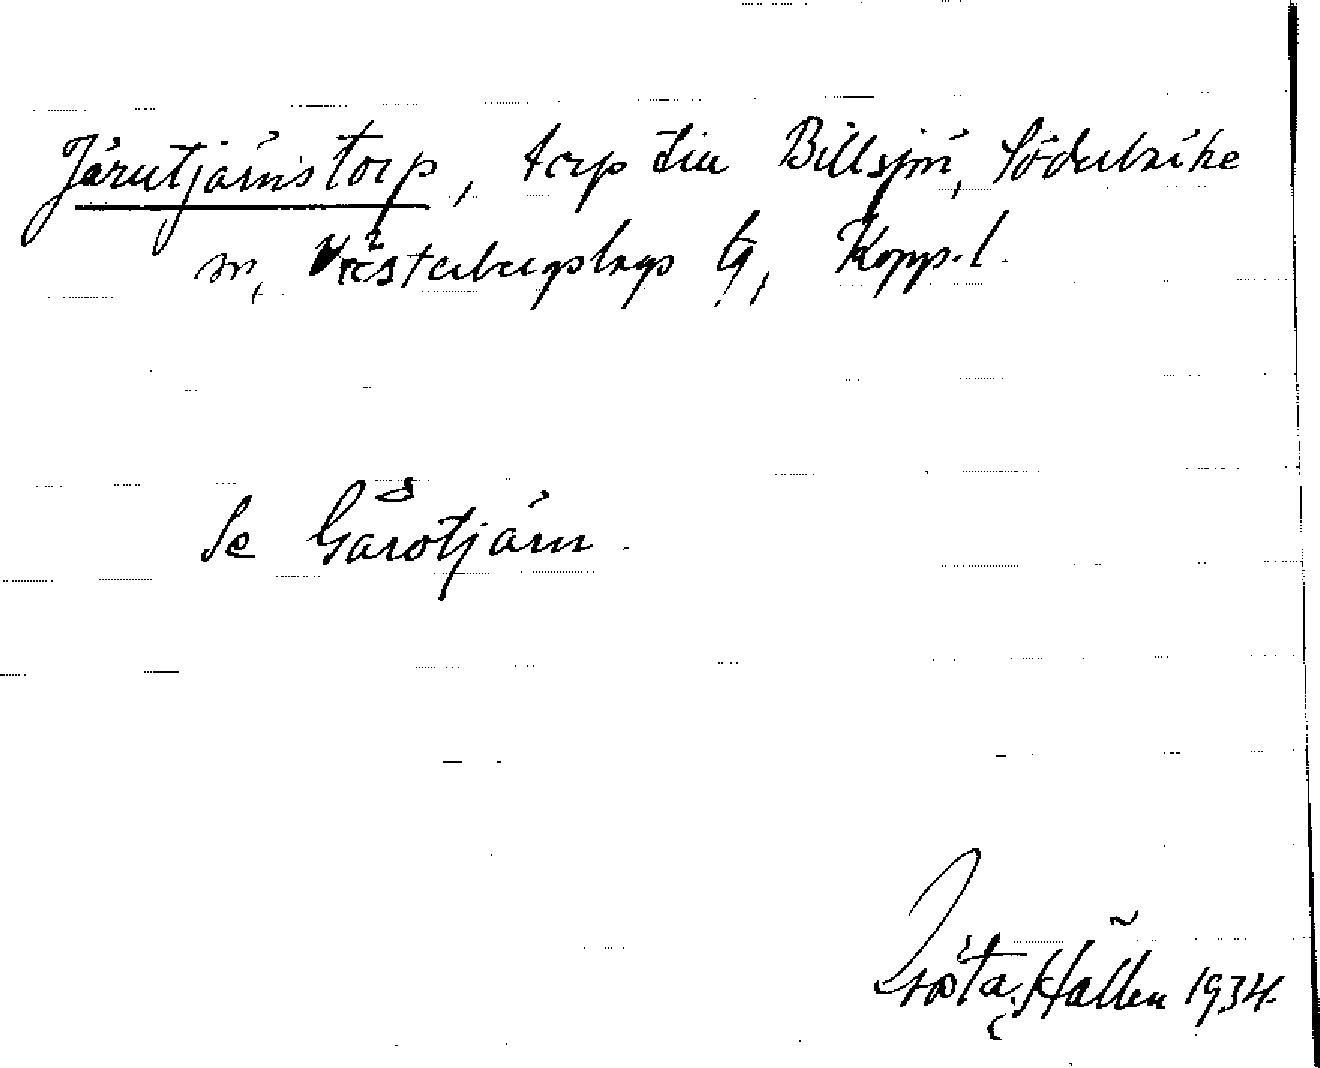 Järutjärnstorp, torp till Billsjön, Söderbärke
sn, Västerbergslags tg, Kopp.l.
Se Gårötjärn.
Gösta Hallén 1934.